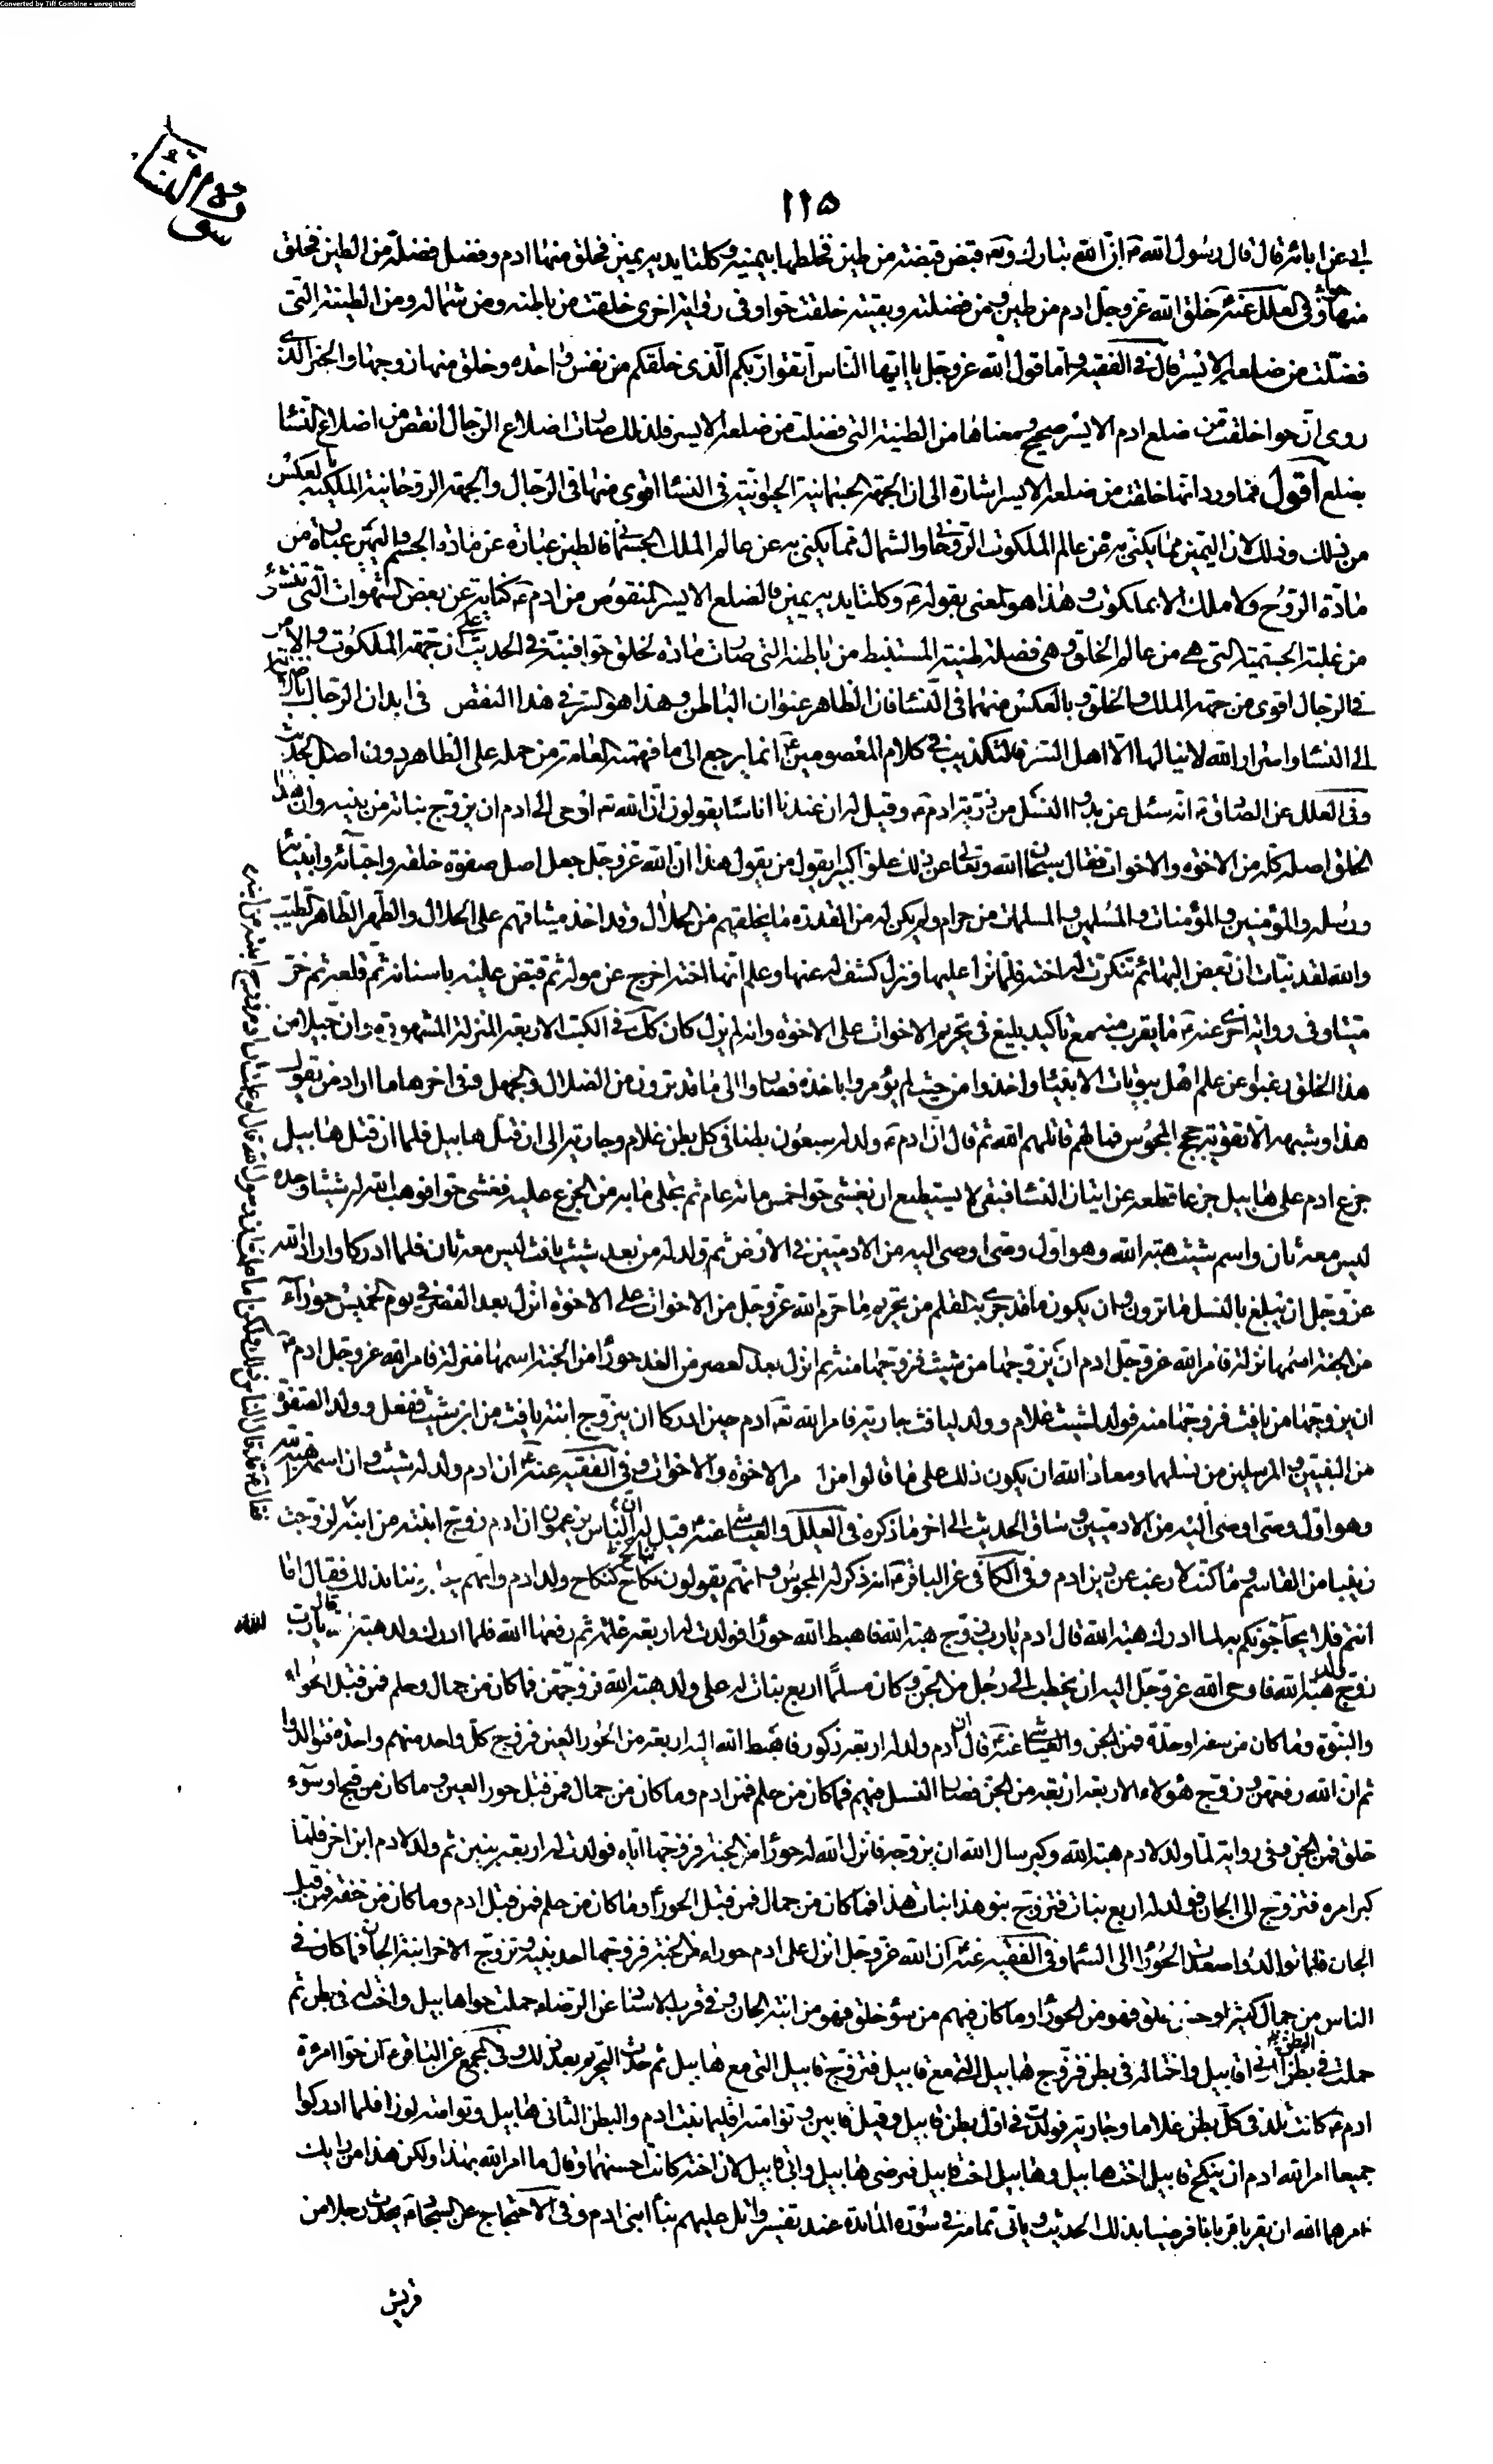 Converted by Tiff Combine - unregistered
سورة النساء
١١٥
ابى عن ابائه قال قال رسول الله ص ان الله تبارك وتعالى قبض قبضة من طين فخلطها بيمينه وكلتا يديه يمين فخلق منها ادم وفضل فضلة من الطين فخلق
منها حواء وفى العلل عنه ع خلق الله عز وجل ادم من طين ومن فضلته وبقيته خلقت حوا وفى رواية اخرى خلقت من باطنه ومن شماله ومن الطينة التى
فضلت من ضلعه الايسر قال فى الفقيه واما قول الله عز وجل يا ايها الناس اتقوا ربكم الذى خلقكم من نفس واحدة وخلق منها زوجها والخبر الذى
روى ان حوا خلقت من ضلع ادم الايسر صحيح ومعناها من الطينة التى فضلت من ضلعه الايسر فلذلك صارت اضلاع الرجال انقص من اضلاع النسا
بضلع اقول فما ورد انها خلقت من ضلعه الايسر اشارة الى ان الجهة الجسمانية الحيوانية فى النسا اقوى منها فى الرجال والجهة الروحانية الملكية بالعكس
من ذلك وذلك لان اليمين مما يكنى به عن عالم الملكوت الروحانى والشمال مما يكنى به عن عالم الملك الجسمانى فالطين عبارة عن مادة الجسم واليمين عبارة من
مادة الروح ولا ملك الا بملكوت وهذا هو المعنى بقوله ع وكلتا يديه يمين فالضلع الايسر المنقوص من ادم ع كناية عن بعض الشهوات التى تنشؤ
من غلبة الجسمية التى هى من عالم الخلق وهى فضلة طينته المستنبط من باطنه التى صارت مادة لخلق حوا فنبه فى الحديث على ان جهة الملكوت والامر
فى الرجال اقوى من جهة الملك والخلق وبالعكس منهما فى النسا فان الظاهر عنوان الباطن وهذا هو السر فى هذا النقص فى ابدان الرجال بالاضافة
الى النسا واسرار الله لا ينالها الا اهل السر فالتكذيب فى كلام المعصومين ع انما يرجع الى ما فهمته العامة من حمله على الظاهر دون اصل الحديث
وفى العلل عن الصادق ع انه سئل عن بدو النسل من ذرية ادم ع وقيل له ان عندنا اناسا يقولون ان الله ته اوحى الى ادم ان يزوج بناته من بنيه وان هذا
الخلق اصله كله من الاخوة والاخوات فقال سبحان الله وتعالى عن ذلك علوا كبيرا يقول من يقول هذا ان الله عز وجل جعل اصل صفوة خلقه واحبائه وانبيائه
ورسله والمؤمنين والمؤمنات والمسلمين والمسلمات من حرام ولم يكن له من القدرة ما يخلقهم من الحلال وقد اخذ ميثاقهم على الحلال والطهر الطاهر الطيب
والله لقد نبئت ان بعض البهائم تنكرت له اخته فلما نزا عليها ونزل كشف له عنها وعلم انها اخته اخرج عن موله ثم قبض عليه باسنانه ثم قلعه ثم خر
ميتا وفى رواية اخرى عنه ع ما يقرب منه مع تاكيد بليغ فى تحريم الاخوات على الاخوة وانه لم يزل كان كك فى الكتب الاربعة المنزلة المشهورة وان جيلا من
هذا الخلق رغبوا عن علم اهل بيوتات الانبيا واخذوا من حيث لم يؤمروا باخذه فصاروا الى ما قد ترون من الضلال والجهل وفى اخرها ما اراد من يقول
هذا وشبهه الا تقوية حجج المجوس فما لهم قاتلهم الله ثم قال ان ادم ع ولد له سبعون بطنا فى كل بطن غلام وجارية الى ان قتل هابيل فلما ان قتل هابيل
جزع ادم على هابيل جزعا قطعه عن اتيان النسا فبقى لا يستطيع ان يغشى حوا خمس مائة عام ثم تجلى ما به من الجزع عليه فغشى حوا فوهب الله له شيثا وحده
ليس معه ثان واسم شيث هبة الله وهو اول وصى اوصى اليه من الادميين فى الارض ثم ولد له من بعد شيث يافث ليس معه ثان فلما ادركا واراد الله
عز وجل ان يبلغ بالنسل ما ترون وان يكون ما قد جرى به القلم من تحريم ما حرم الله عز وجل من الاخوات على الاخوة انزل بعد العصر فى يوم الخميس حوراء
من الجنة اسمها نزلة فامر الله عز وجل ادم ان يزوجها من شيث فزوجها منه ثم انزل بعد العصر من الغد حورا من الجنة اسمها منزلة فامر الله عز وجل ادم ع
ان يزوجها من يافث فزوجها منه فولد لشيث غلام وولد ليافث جارية فامر الله تعه ادم حين ادركا ان يزوج ابنة يافث من ابن شيث ففعل وولد الصفوة
من النبيين والمرسلين من نسلهما ومعاذ الله ان يكون ذلك على ما قالوا من الاخوة والاخوات وفى الفقيه عنه ع ان ادم ولد له شيث وان اسمه هبة الله
وهو اول وصى اوصى اليه من الادميين وساق الحديث الى اخر ما ذكره فى العلل والعياشى عنه ع قيل له ان الناس يزعمون ان ادم زوج ابنته من ابنه
فقال ع قد قال الناس ذلك ولكن اما علمت ان رسول الله قال لو علمت ان ادم زوج ابنته من ابنه
لزوجت
زينبا من القاسم وما كنت لارغب عن دين ادم وفى الكافى عن الباقر ع انه ذكر له المجوس وانهم يقولون نكاح كنكاح ولد ادم وانهم يحاجوننا بذلك فقال اما
انتم فلا يحاجونكم به لما ادرك هبة الله قال ادم يا رب زوج هبة الله فاهبط الله حورا فولدت له اربعة غلمة ثم رفعها الله فلما ادرك ولد هبة الله قال يا رب
زوج ولد هبة الله فاوحى الله عز وجل اليه ان يخطب الى رجل من الجن وكان مسلما اربع بنات له على ولد هبة الله فزوجهن فما كان من جمال وحلم فمن قبل الحوراء
والنبوة وما كان من سفه او حدة فمن الجن والعياشى عنه ع قال ان ادم ولد له اربعة ذكور فاهبط الله اليه اربعة من الحور العين فزوج كل واحد منهم واحدة فتوالدوا
ثم ان الله رفعهن وزوج هؤلاء الاربعة اربعة من الجن فصار النسل فيهم فما كان من حلم فمن ادم وما كان من جمال فمن قبل حور العين وما كان من قبح او سوء
خلق فمن الجن وفى رواية لما ولد لادم هبة الله وكبر سال الله ان يزوجه فانزل الله له حورا من الجنة فزوجها اياه فولدت له اربعة بنين ثم ولد لادم ابن اخر فلما
كبر امره فتزوج الى الجان فولد له اربع بنات فتزوج بنو هذا بنات هذا فما كان من جمال فمن قبل الحورا وما كان من حلم فمن قبل ادم وما كان من خفة فمن قبل
الجان فلما توالدوا صعدت الحورا الى السما وفى الفقيه عنه ع ان الله عز وجل انزل على ادم حوراء من الجنة فزوجها احد بنيه وتزوج الاخر ابنة الجان فما كان فى
الناس من جمال كثير او حسن خلق فهو من الحورا وما كان فيهم من سؤ خلق فهو من ابنة الجان وفى قرب الاسناد عن الرضا ع حملت حوا هابيل واختا له فى بطن ثم
حملت فى البطن الثانى قابيل واختا له فى بطن فزوج هابيل التى مع قابيل فتزوج قابيل التى مع هابيل ثم حدث التحريم بعد ذلك وفى المجمع عن الباقر ع ان حوا امرءة
ادم ع كانت تلد فى كل بطن غلاما وجارية فولدت فى اول بطن قابيل وقيل قابين وتوامته اقليما بنت ادم والبطن الثانى هابيل وتوامته لوزا فلما ادركوا
جميعا امر الله ادم ان ينكح قابيل اخت هابيل وهابيل اخت قابيل فرضى هابيل وابى قابيل لان اخته كانت احسنهما وقال ما امر الله بهذا ولكن هذا من رايك
فامرهما الله ان يقربا قربانا فرضيا بذلك الحديث وياتى تمامه فى سورة المائدة عند تفسير واتل عليهم نبأ ابنى ادم وفى الاحتجاج عن السجاد ع يحدث رجلا من
قريش